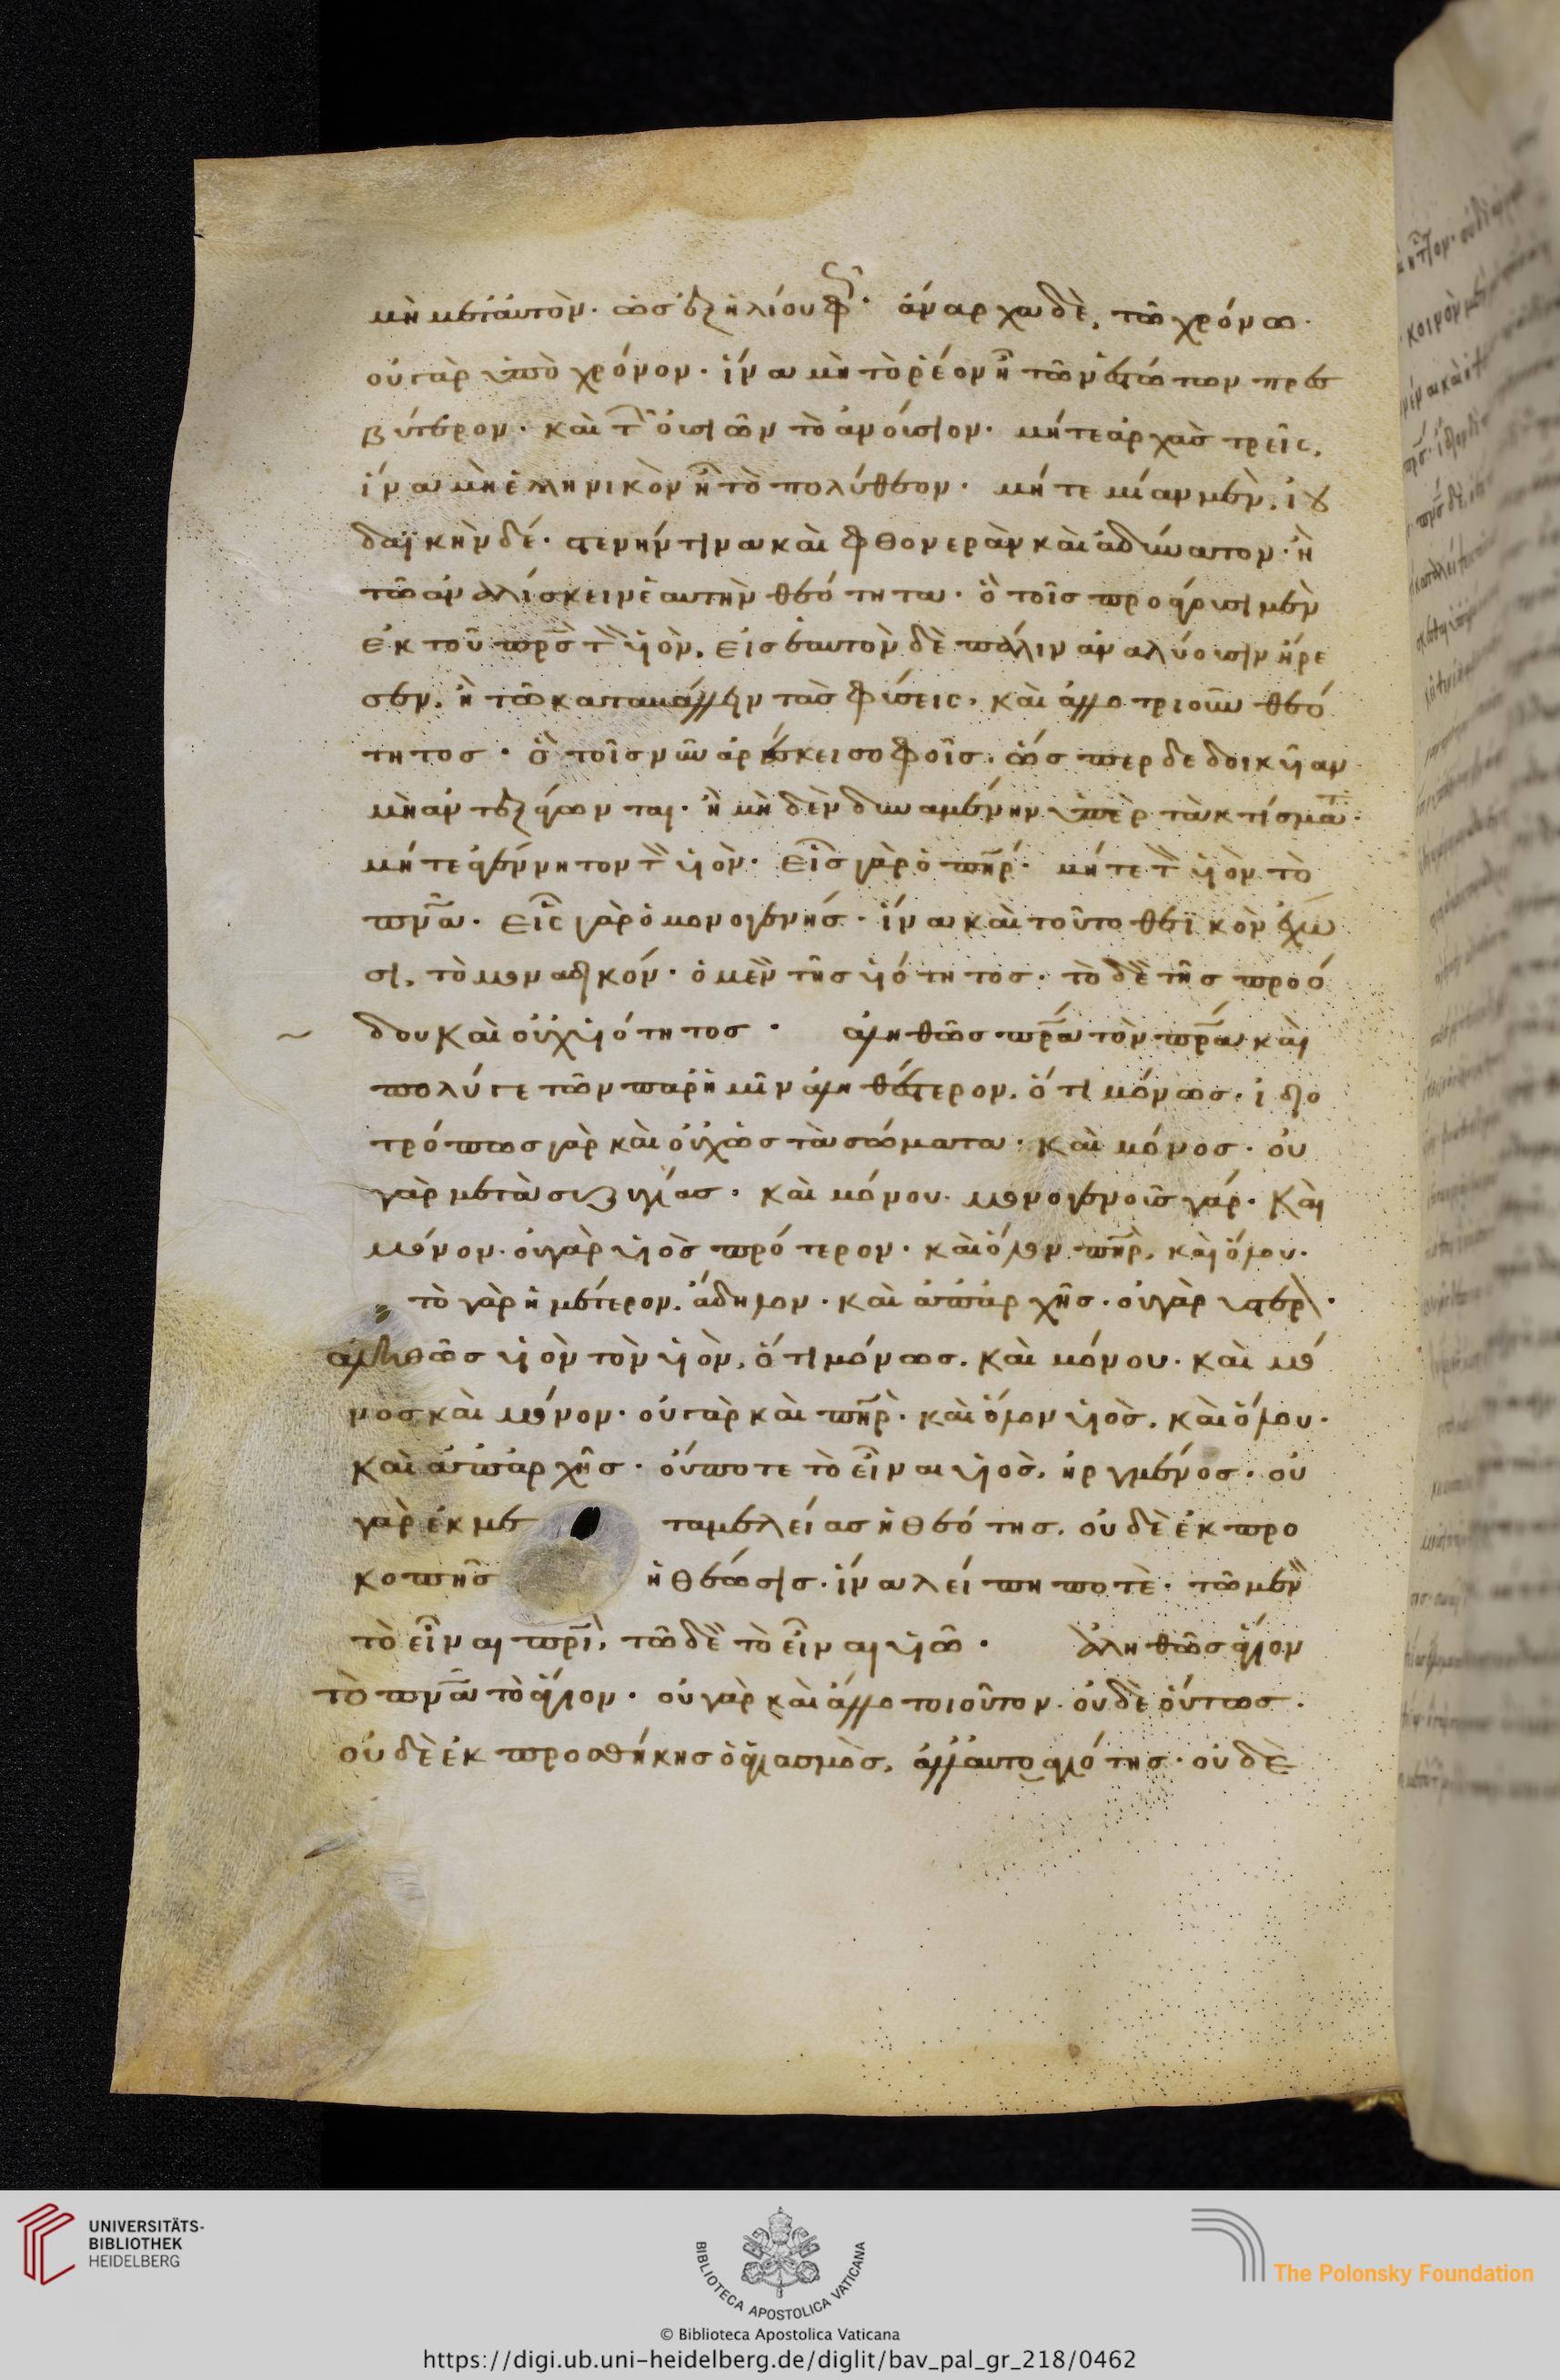 μὴ μετ' αὐτὸν· ὡς ἐξ ἡλίου φῶς· ἄναρχα δὲ, τῶ χρόνω·
οὐ γὰρ ὑπὸ χρόνον· ἵνα μὴ τὸ ῥέον ἦ τῶν ἑστώτων πρεσ
βύτερον· καὶ τῶν οὐσιῶν τὸ ἀνούσιον· μήτε ἀρχὰς τρεῖς,
ἵνα μὴ ἑλληνικὸν ἦ τὸ πολύθεον· μήτε μίαν μὲν, ἰου
δαϊκὴν δέ· στενήν τινα καὶ φθονερὰν καὶ ἀδύνατον· ἢ
τῶ ἀναλίσκειν ἑαυτὴν θεότητα· ὃ τοῖς προάγουσι μὲν
ἐκ τοῦ πρς τὸν υἱὸν, εἰς ἑαυτὸν δὲ πάλιν ἀναλύουσιν ἤρε
σεν, ἢ τῶ καταβάλλειν τὰς φύσεις, καὶ ἀλλοτριοῦν θεό
τητος· ὃ τοῖς νῦν ἀρέσκει σοφοῖς· ὥσπερ δεδοικυῖαν
μὴ ἀντεξάγωνται· ἢ μηδὲν δυναμένην ὑπὲρ τὰ κτίσματα·
μήτε ἀγέννητον τὸν υἱὸν· εἷς γὰρ ὁ πηρ· μήτε τὸν υἱὸν τὸ
πνα· εἷς γὰρ ὁ μονογενής· ἵνα καὶ τοῦτο θεϊκὸν ἔχω
σι, τὸ μοναδικόν· ὁ μὲν τῆς υἱότητος· τὸ δὲ τῆς προό
δου καὶ οὐχ υἱότητος· ἀληθῶς πρα τὸν πρα καὶ
πολύ γε τῶν παρ' ἡμῖν ἀληθέστερον, ὅτι μόνως· ἰδιο
τρόπως γὰρ καὶ οὐχ ὡς τὰ σώματα· καὶ μόνος· οὐ
γὰρ μετὰ συζυγίας· καὶ μόνου· μονογενοῦς γάρ· καὶ
μόνον· οὐ γὰρ υἱὸς πρότερον· καὶ ὅλον πηρ, καὶ ὅλου·
τὸ γὰρ ἡμέτερον, ἄδηλον· καὶ ἀπ' ἀρχῆς· οὐ γὰρ ὕστερον·
ἀληθῶς υἱὸν τὸν υἱὸν, ὅτι μόνως, καὶ μόνου· καὶ μό
νος καὶ μόνον· οὐ γὰρ καὶ πηρ· καὶ ὅλον υἱὸς, καὶ ὅλου·
καὶ ἀπ' ἀρχῆς· οὔποτε τὸ εἶναι υἱὸς, ἠργμένος· οὐ
γὰρ ἐκ με ταμελείας ἡ θεότης, οὐδὲ ἐκ προ
κοπῆς ἡ θέωσις· ἵνα λείπη ποτὲ· τῶ μὲν
τὸ εἶναι πρι, τῶ δὲ τὸ εἶναι υἱῶ· Ἀληθῶς ἅγιον
τὸ πνα τὸ ἅγιον· οὐ γὰρ καὶ ἄλλο τοιοῦτον· οὐδὲ οὕτως·
οὐδὲ ἐκ προσθήκης ὁ ἁγιασμὸς, ἀλλ' αὐτοαγιότης· οὐδὲ
UNIVERSITÄTS-
BIBLIOTHEK
HEIDELBERG
BIBLIOTECA APOSTOLICA VATICANA
The Polonsky Foundation
© Biblioteca Apostolica Vaticana
https://digi.ub.uni-heidelberg.de/diglit/bav_pal_gr_218/0462